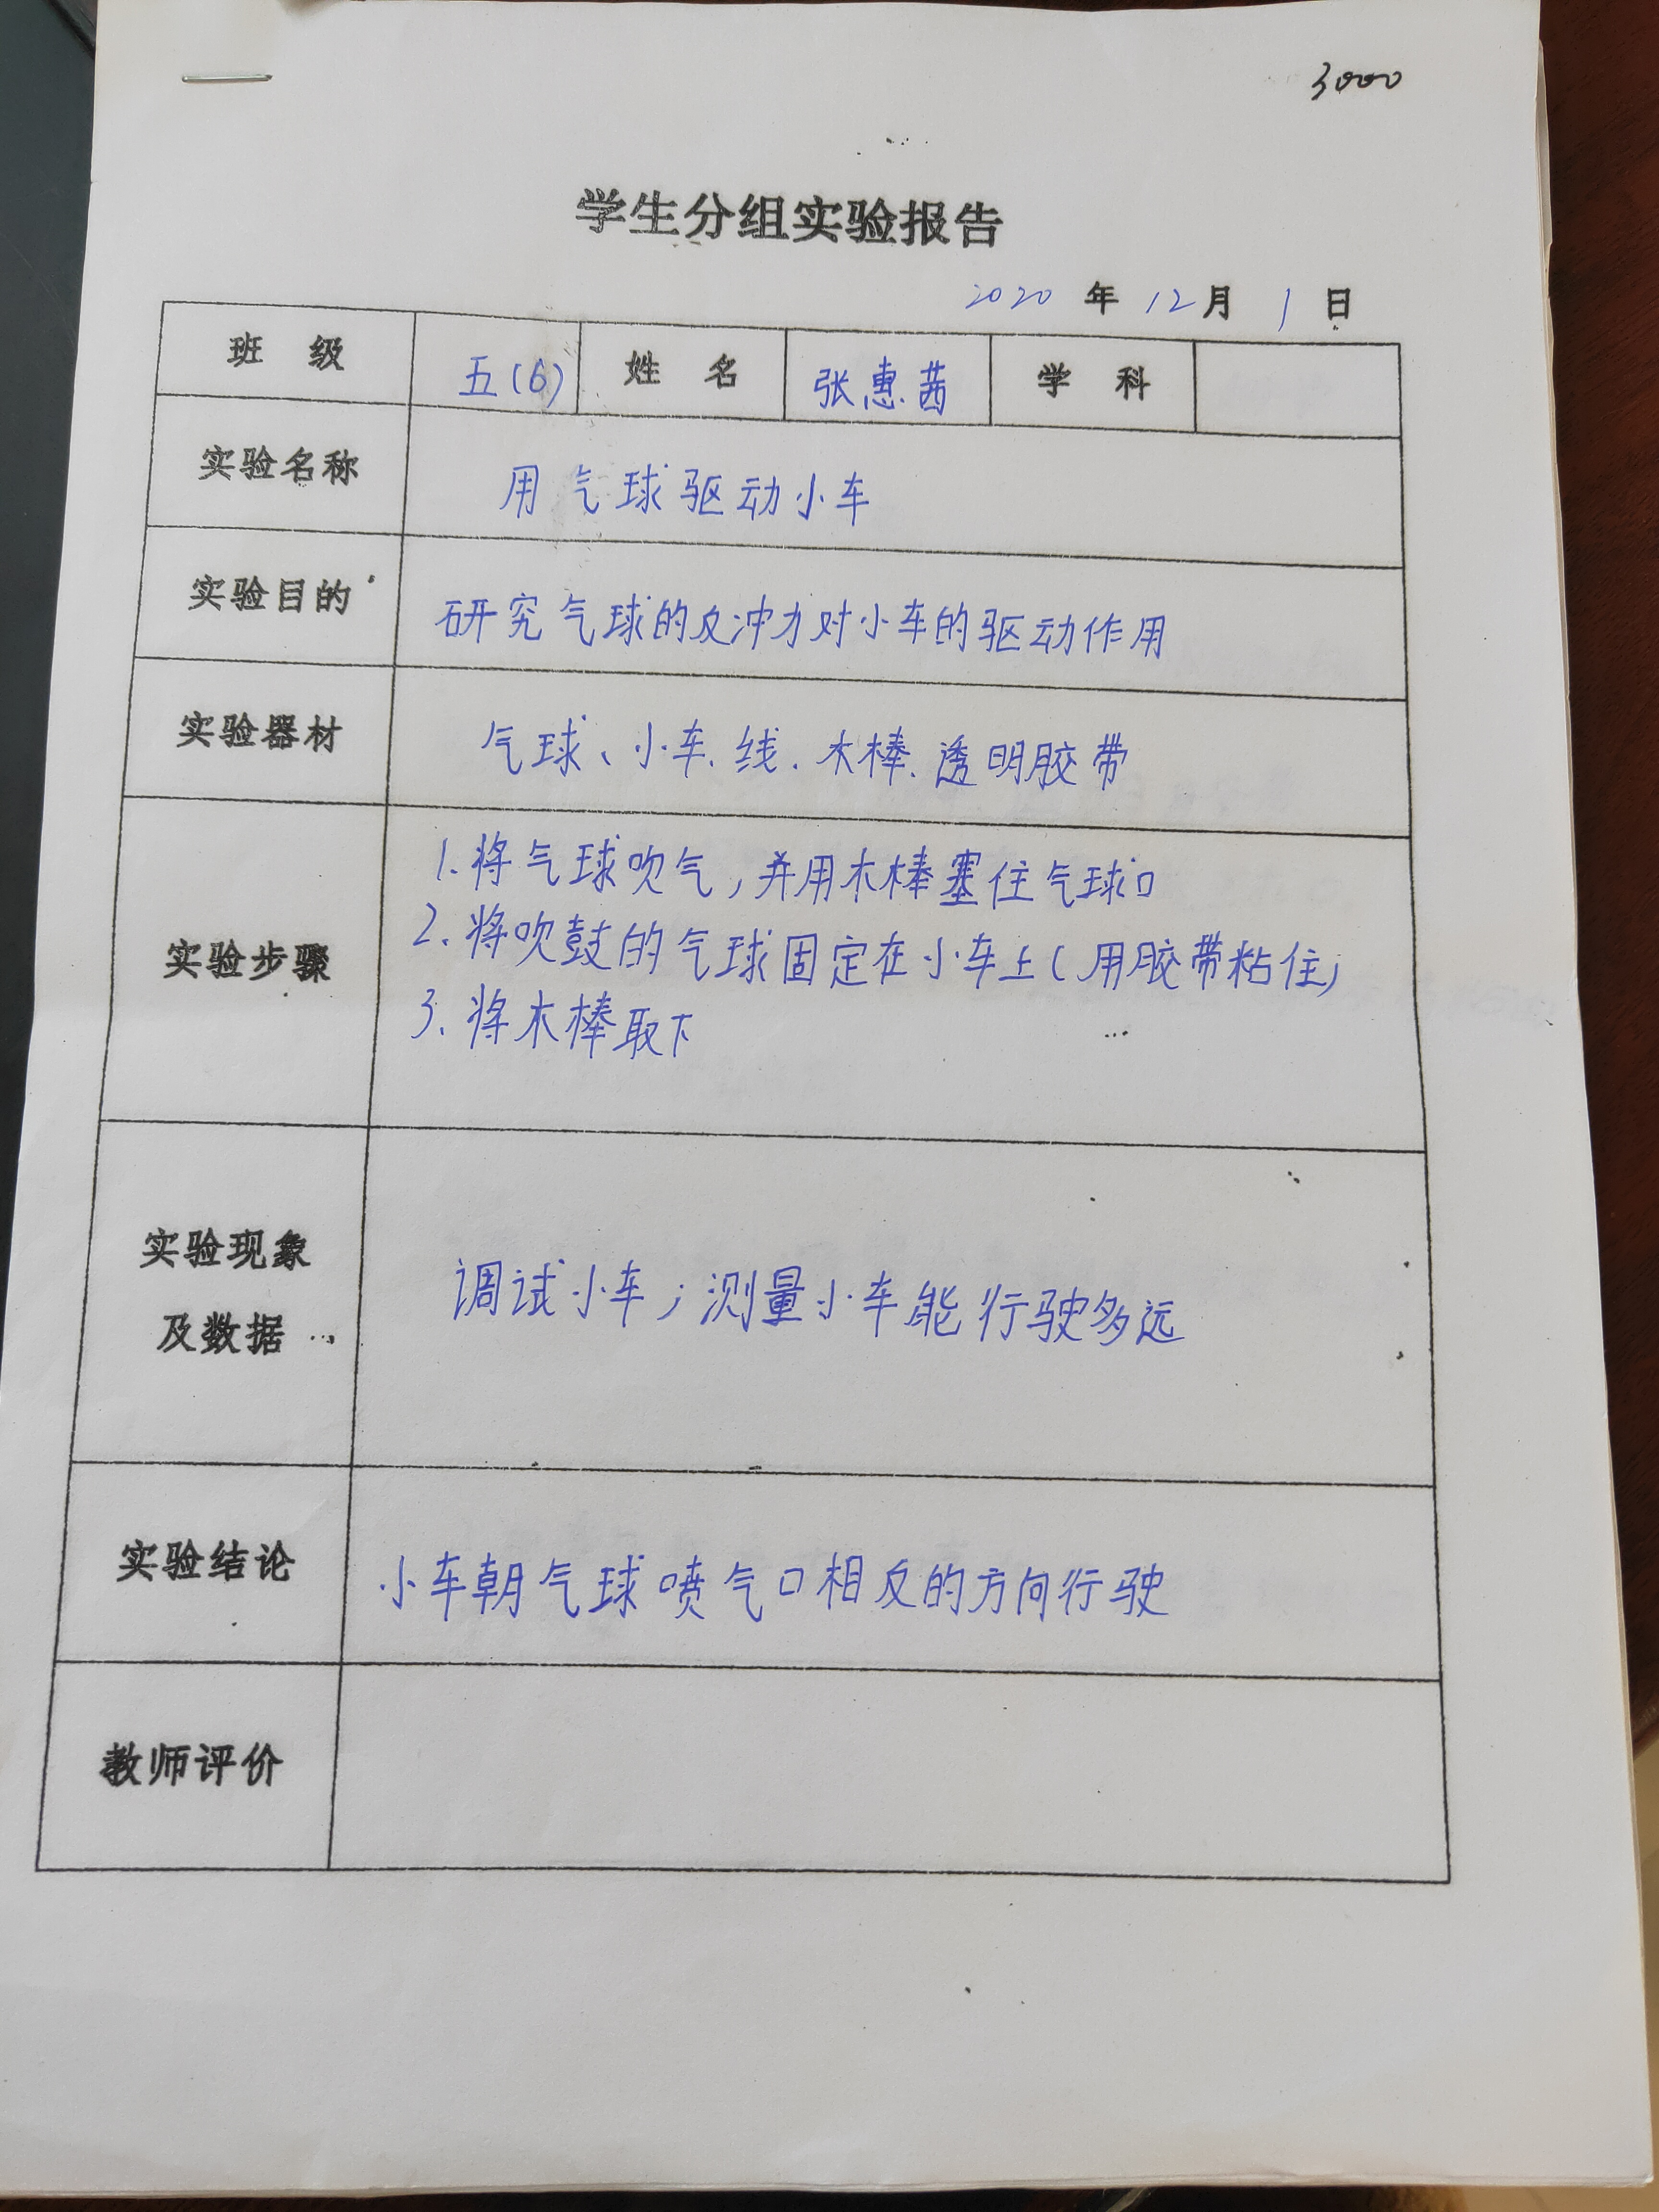 3000
学生分组实验报告
2020 年 12 月 1 日
班 级 五(6) 姓 名 张惠茜 学 科
实验名称 用气球驱动小车
实验目的 研究气球的反冲力对小车的驱动作用
实验器材 气球、小车、线、木棒、透明胶带
实验步骤
1.将气球吹气,并用木棒塞住气球口
2.将吹鼓的气球固定在小车上(用胶带粘住)
3.将木棒取下
实验现象
及数据
调试小车;测量小车能行驶多远
实验结论 小车朝气球喷气口相反的方向行驶
教师评价